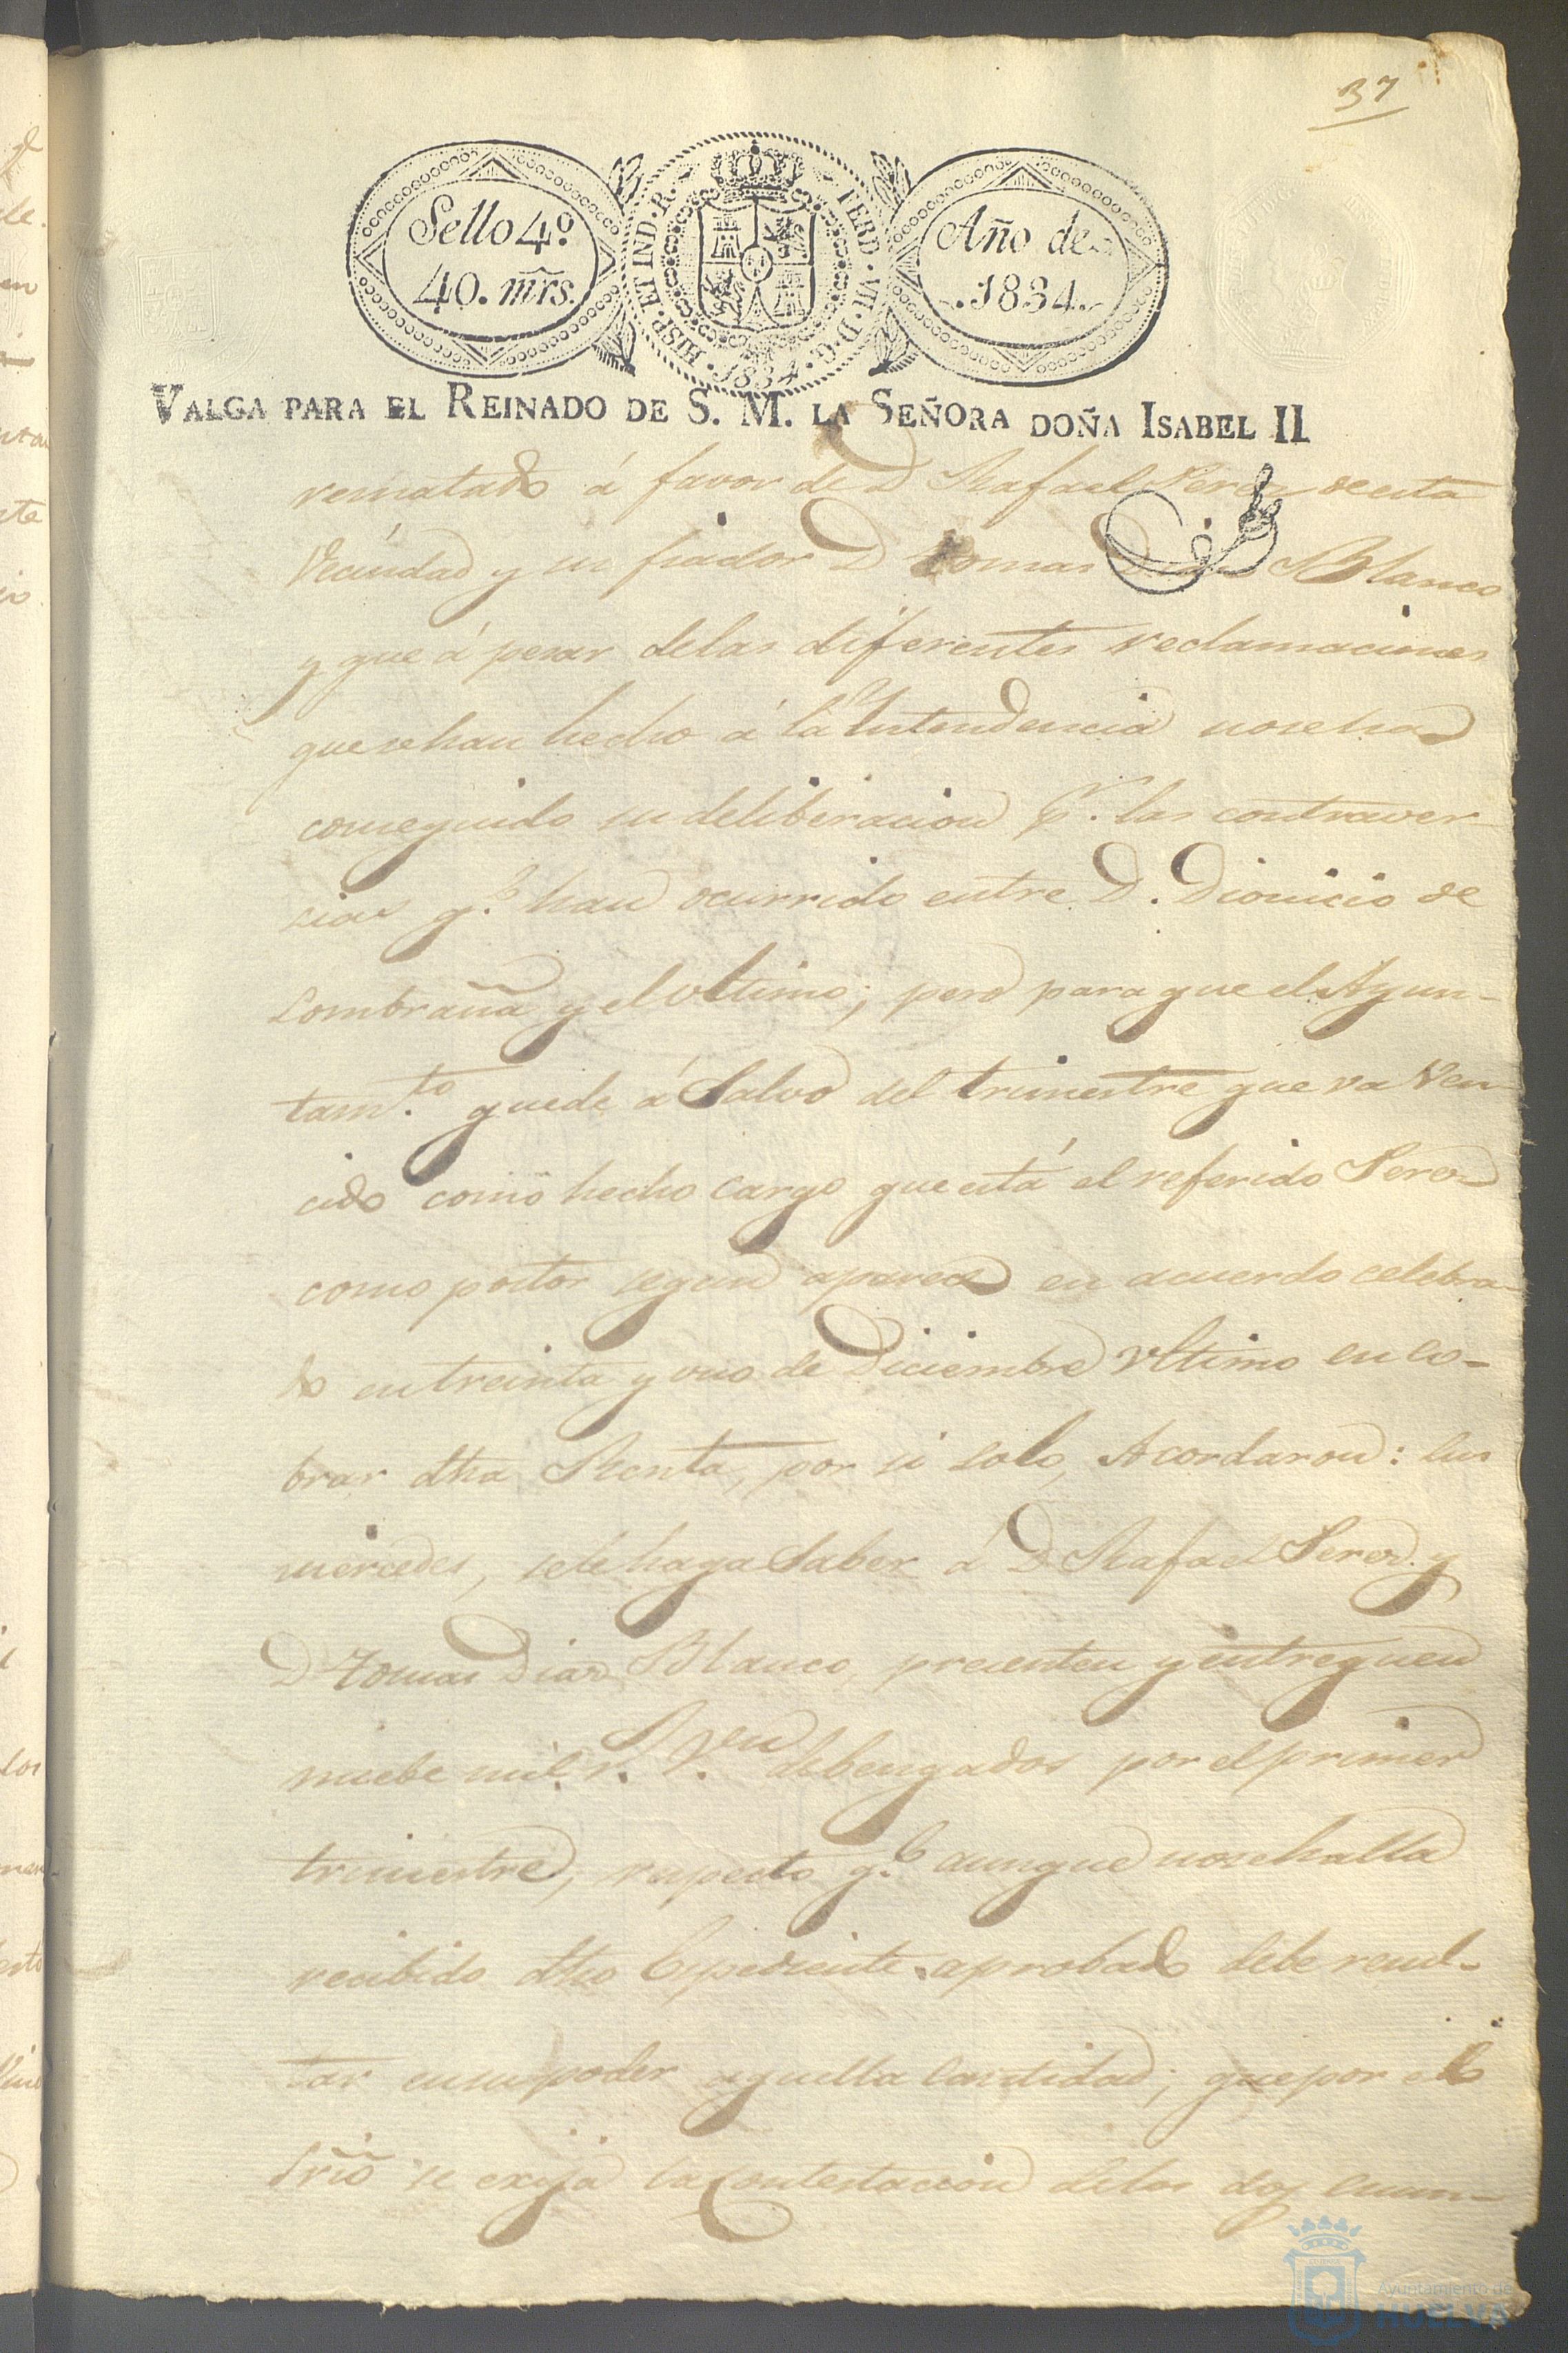 37
Sello 4º.
40. mrs.
HISP. ET IND. R. FERD. VII. D. G. 1834.
Año de
1834.
VALGA PARA EL REINADO DE S. M. LA SEÑORA DOÑA ISABEL II
rematado á favor de D Rafael Perez de esta
Vecindad y su fiador D Tomas Diaz Blanco
y que á pesar delas diferentes reclamaciones
que se han hecho á la Yntendencia no se ha
conseguido su deliberacion Pr. las contraver-
cias q.e han ocurrido entre D. Dionicio de
Lombraña y el ultimo; pero para que el Ayun-
tam.to quede á Salvo del trimestre que va ven-
cido como hecho cargo que está el referido Perez
como postor segun aparece en acuerdo celebra-
do en treinta y uno de Diciembre Vltimo en co-
brar dha Renta, por si solo, Acordaron: sus
mercedes, se le haga Saber á D Rafael Perez y
D Tomas Diaz Blanco, presenten y entreguen
nuebe mil r. V.on debengados por el primer
trimestre, respecto q.e aunque no se halla
recibido dho Espediente aprobado debe resul-
tar en su poder aquella Cantidad; que por el
Srio se exija la Contestacion delos dos Cuum-
Ayuntamiento de
HUELVA